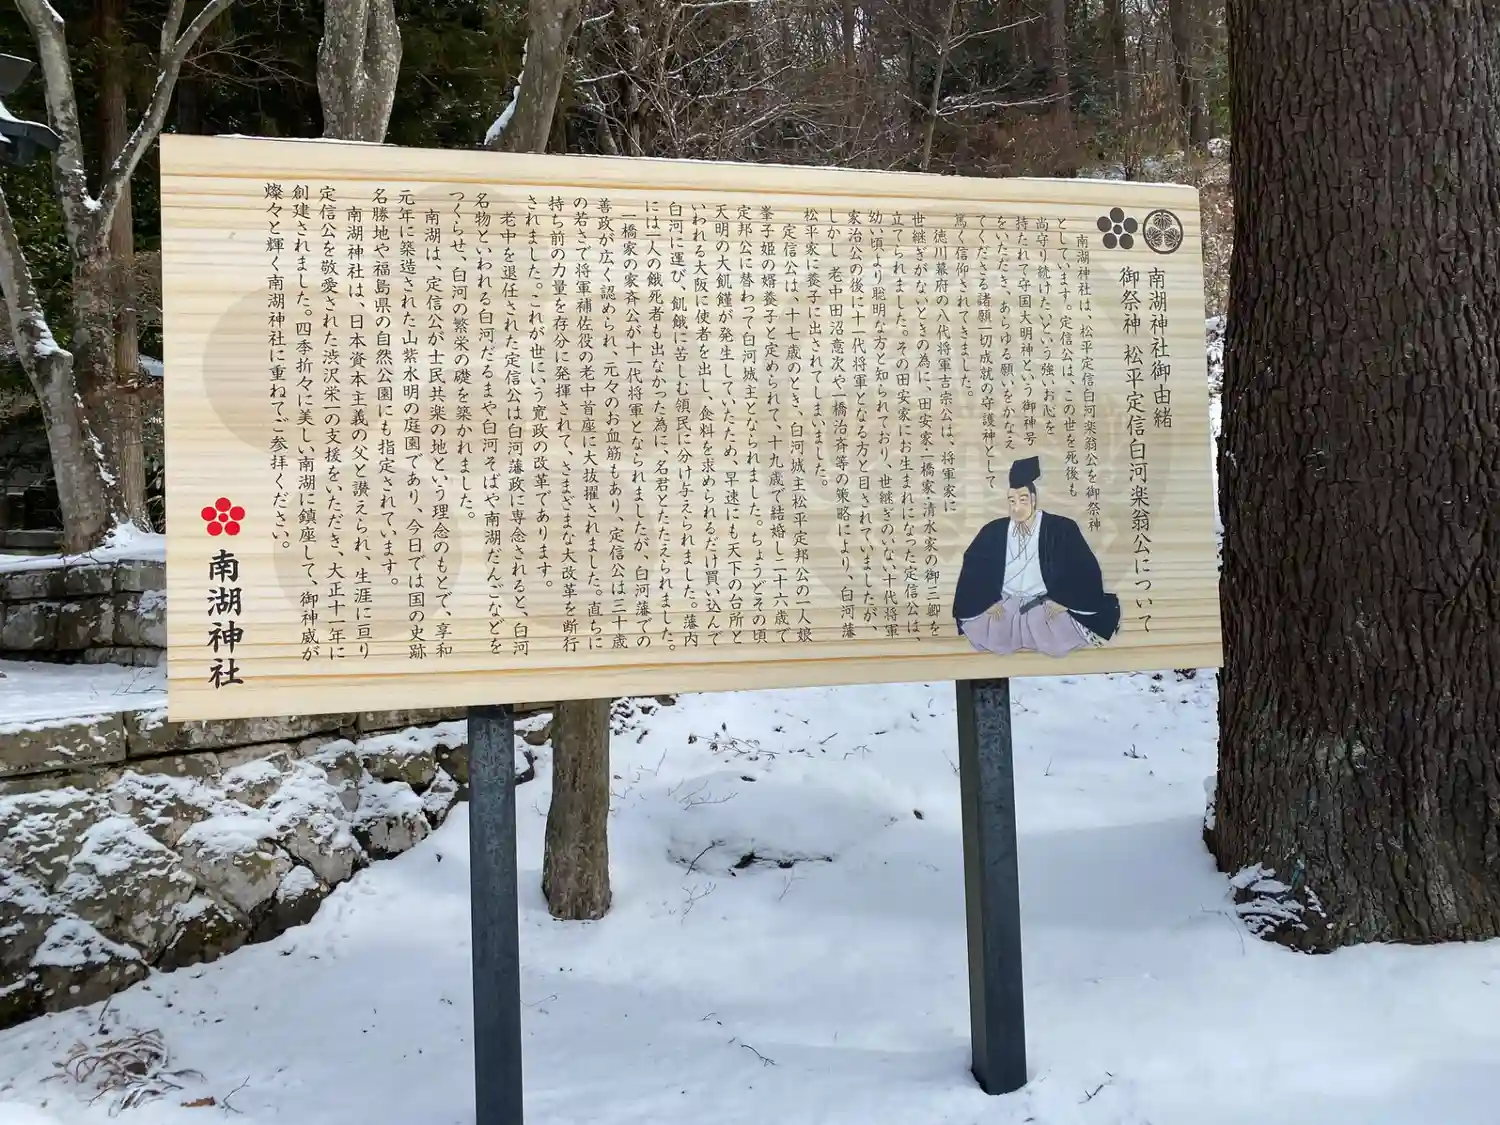 南湖神社御由緒
御祭神 松平定信白河楽翁公について
南湖神社は、松平定信白河楽翁公を御祭神
としています。定信公は、この世を死後も
尚守り続けたいという強いお心を
持たれて守国大明神という御神号
をいただき、あらゆる願いをかなえ
てくださる諸願一切成就の守護神として
篤く信仰されてきました。
徳川幕府の八代将軍吉宗公は、将軍家に
世継ぎがないときの為に、田安家一橋家清水家の御三卿を
立てられました。その田安家にお生まれになった定信公は、
幼い頃より聡明な方と知られており、世継ぎのいない十代将軍
家治公の後に十一代将軍となる方と目されていましたが、
しかし 老中田沼意次や一橋治斉等の策略により、白河藩
松平家に養子に出されてしまいました。
定信公は、十七歳のとき、白河城主松平定邦公の一人娘
峯子姫の婿養子と定められて、十九歳で結婚し二十六歳で
定邦公に替わって白河城主となられました。ちょうどその頃
天明の大飢饉が発生していたため、早速にも天下の台所と
いわれる大阪に使者を出し、食料を求められるだけ買い込んで
白河に運び、飢餓に苦しむ領民に分け与えられました。藩内
には一人の餓死者も出なかった為に、名君とたたえられました。
一橋家の家斉公が十一代将軍となられましたが、白河藩での
善政が広く認められ、元々のお血筋もあり、定信公は三十歳
の若さで将軍補佐役の老中首座に大抜擢されました。直ちに
持ち前の力量を存分に発揮されて、さまざまな大改革を断行
されました。これが世にいう寛政の改革であります。
老中を退任された定信公は白河藩政に専念されると、白河
名物といわれる白河だるまや白河そばや南湖だんごなどを
つくらせ、白河の繁栄の礎を築かれました。
南湖は、定信公が士民共楽の地という理念のもとで、享和
元年に築造された山紫水明の庭園であり、今日では国の史跡
名勝地や福島県の自然公園にも指定されています。
南湖神社は、日本資本主義の父と讃えられ、生涯に亘り
定信公を敬愛された渋沢栄一の支援をいただき、大正十一年に
創建されました。四季折々に美しい南湖に鎮座して、御神威が
燦々と輝く南湖神社に重ねてご参拝ください。
南湖神社